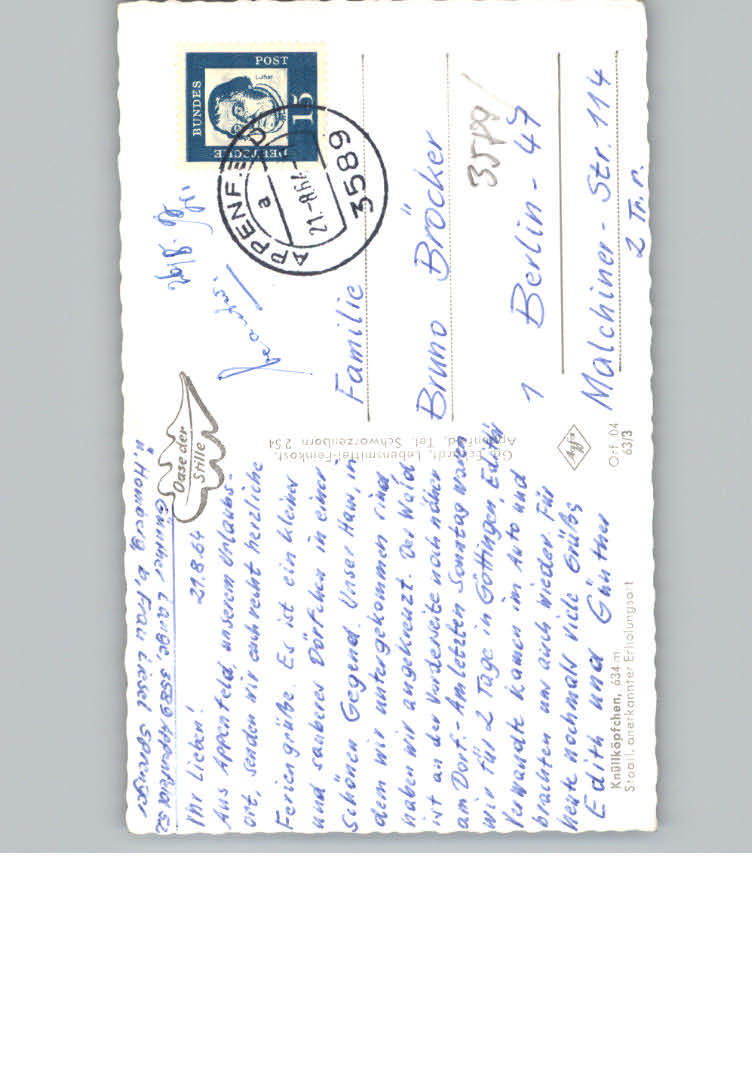 Günther Lange, 3589 Appenfeld 52
ü. Homberg, b. Frau Liesel Sprenger
Oase der
Stille
21.8.64
Ihr Lieben!
Aus Appenfeld, unserem Urlaubs-
ort, senden wir euch recht herzliche
Feriengrüße. Es ist ein kleiner
und sauberes Dörfchen in einer
schönen Gegend. Unser Haus, in
dem wir untergekommen sind,
haben wir angekreuzt. Der Wald
ist an der Vorderseite noch näher
am Dorf.- Am letzten Sonntag waren
wir für 2 Tage in Göttingen, Ediths
Verwandte kamen im Auto und
brachten uns auch wieder. Für
heute nochmals viele Grüße
Edith und Günther
Knüllköpfchen, 634 m
Staatl. anerkannter Erholungsort
Eckhardt, Lebensmittel-Feinkost,
Appenfeld, Tel. Schwarzenborn 254
Agfa
Orf. 04
63/3
DEUTSCHE
BUNDES
POST
Luther
15
APPENFELD
a
21.-8.64
3589
26/8.
3599
Familie
Bruno Bröcker
1 Berlin - 47
Malchiner - Str. 114
2 Tr. r.